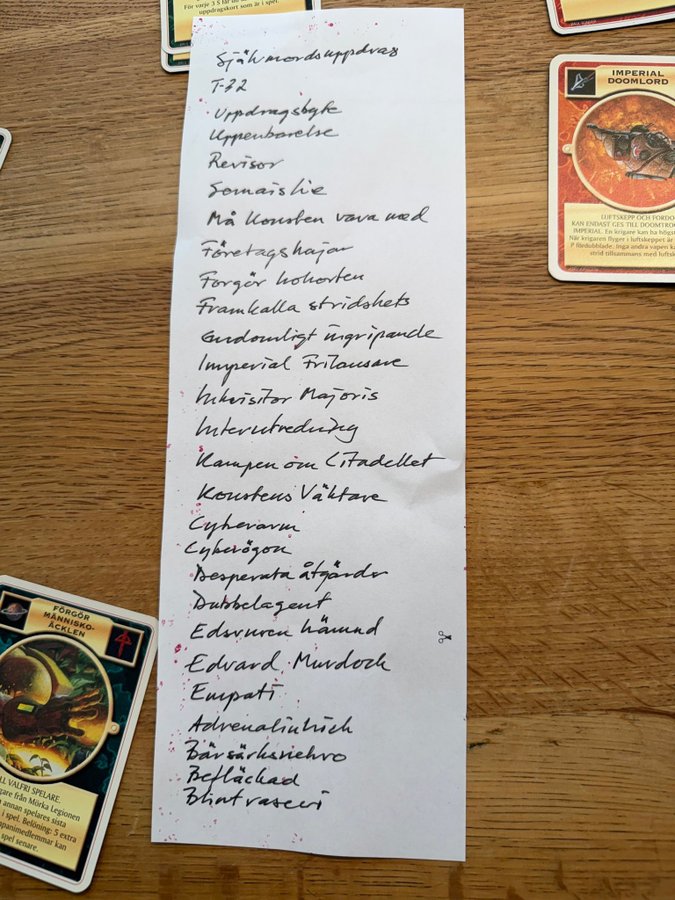 För varje 3 S får du
uppdragskort som är i spel.
Självmordsuppdrag
T-32
Uppdragsbyte
Uppenbarelse
Revisor
Må Konsten vara med
Företagshajar
Förgör kohorten
Framkalla stridshets
Gudomligt ingripande
Imperial Frilansare
Inkvisitor Majoris
Internutredning
Kampen om Citadellet
Konstens Väktare
Cyberarm
Cyberögon
Desperata åtgärder
Dubbelagent
Edsvuren hämnd
Edward Murdoch
Empati
Adrenalinkick
Bärsärksnekro
Befläckad
Blint raseri
IMPERIAL
DOOMLORD
LUFTSKEPP OCH FORDO
KAN ENDAST GES TILL DOOMTRO
IMPERIAL. En krigare kan ha högst
När krigaren flyger i luftskeppet är
P fördubblade. Inga andra vapen k
strid tillsammans med luftsk
FÖRGÖR
MÄNNISKO-
ÄCKLEN
LL VALFRI SPELARE.
gare från Mörka Legionen
annan spelares sista
i spel. Belöning: 5 extra
mpanimedlemmar kan
spel senare.